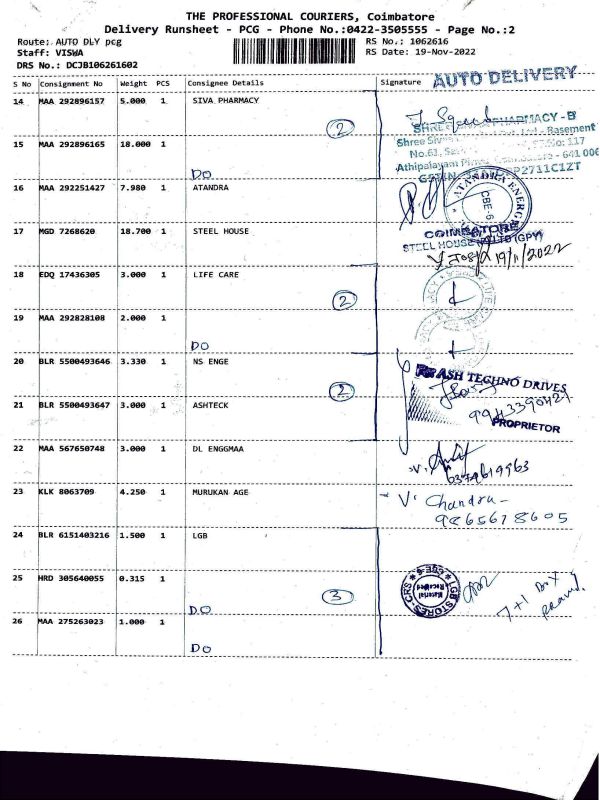 THE PROFESSIONAL COURIERS, Coimbatore
Delivery Runsheet - PCG - Phone No.:0422-3505555 - Page No.:2
Route: AUTO DLY pcg
RS No.: 1062616
Staff: VISWA
RS Date: 19-Nov-2022
DRS No.: DCJB106261602
S No Consignment No Weight PCS Consignee Details Signature
AUTO DELIVERY
14 MAA 292896157 5.000 1 SIVA PHARMACY
2
PHARMACY - B
Basement
15 MAA 292896165 18.000 1
Shree
No: 117
No.61,
Athipalayam
641 006
DO
16 MAA 292251427 7.980 1 ATANDRA
ATANDRA ENERGY
CBE-6
17 MGD 7268620 18.700 1 STEEL HOUSE
COIMBATORE
STEEL HOUSE
(GPY)
19/11/2022
18 EDQ 17436305 3.000 1 LIFE CARE
2
19 MAA 292828108 2.000 1
DO
20 BLR 5500493646 3.330 1 NS ENGE
2
ASH TECHNO DRIVES
21 BLR 5500493647 3.000 1 ASHTECK
PROPRIETOR
22 MAA 567650748 3.000 1 DL ENGGMAA
23 KLK 8063709 4.250 1 MURUKAN AGE
V. Chandra -
9865678605
24 BLR 6151403216 1.500 1 LGB
25 HRD 305640055 0.315 1
3
LGB STORES-CRS
Material
Received
7+1 Box
DO
26 MAA 275263023 1.000 1
DO